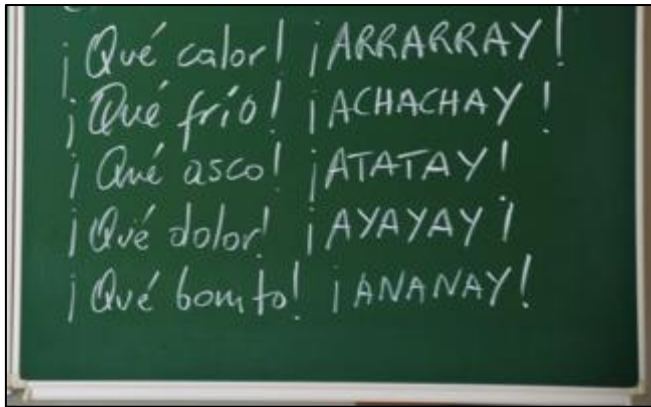 ¡Qué calor! ¡ARRARRAY!
¡Qué frío! ¡ACHACHAY!
¡Qué asco! ¡ATATAY!
¡Qué dolor! ¡AYAYAY!
¡Qué bonito! ¡ANANAY!